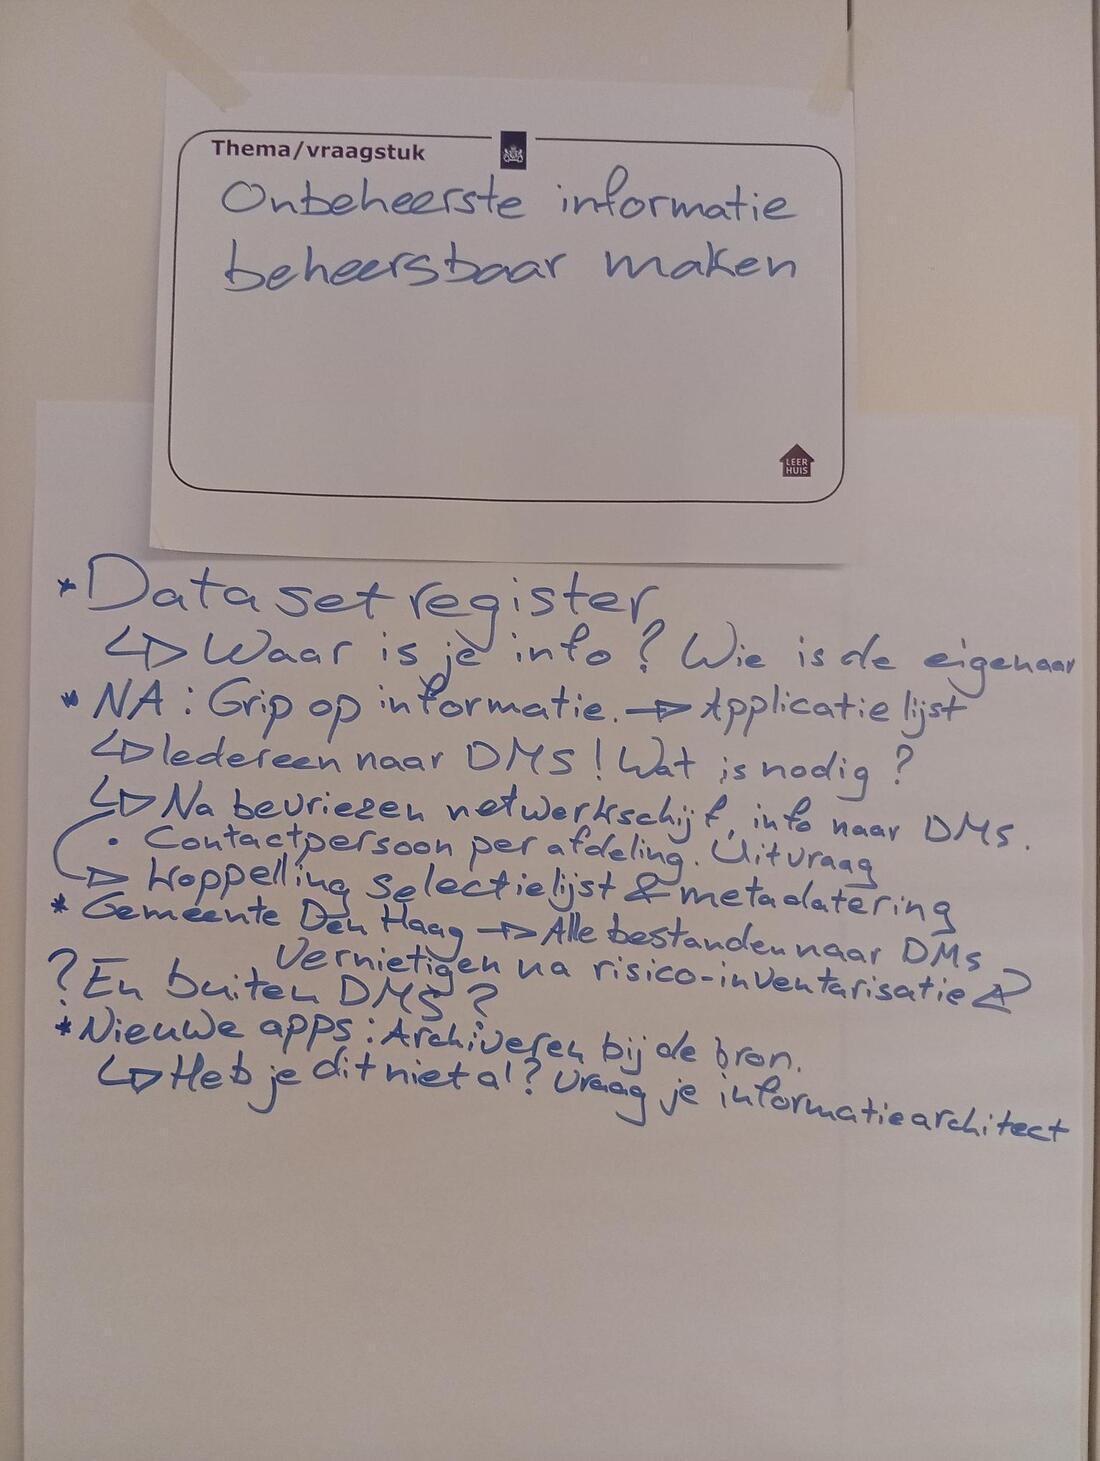 Thema/vraagstuk
Onbeheerste informatie
beheersbaar maken
LEER
HUIS
* Data set register
↳ Waar is je info? Wie is de eigenaar
* NA: Grip op informatie. → Applicatielijst
↳ Iedereen naar DMS! Wat is nodig?
↳ Na bevriezen netwerkschijf, info naar DMS.
• Contactpersoon per afdeling. Uitvraag
→ koppeling selectielijst & metadatering
* Gemeente Den Haag → Alle bestanden naar DMS
Vernietigen na risico-inventarisatie
? En buiten DMS?
* Nieuwe apps: Archiveren bij de bron.
↳ Heb je dit niet al? Vraag je informatiearchitect